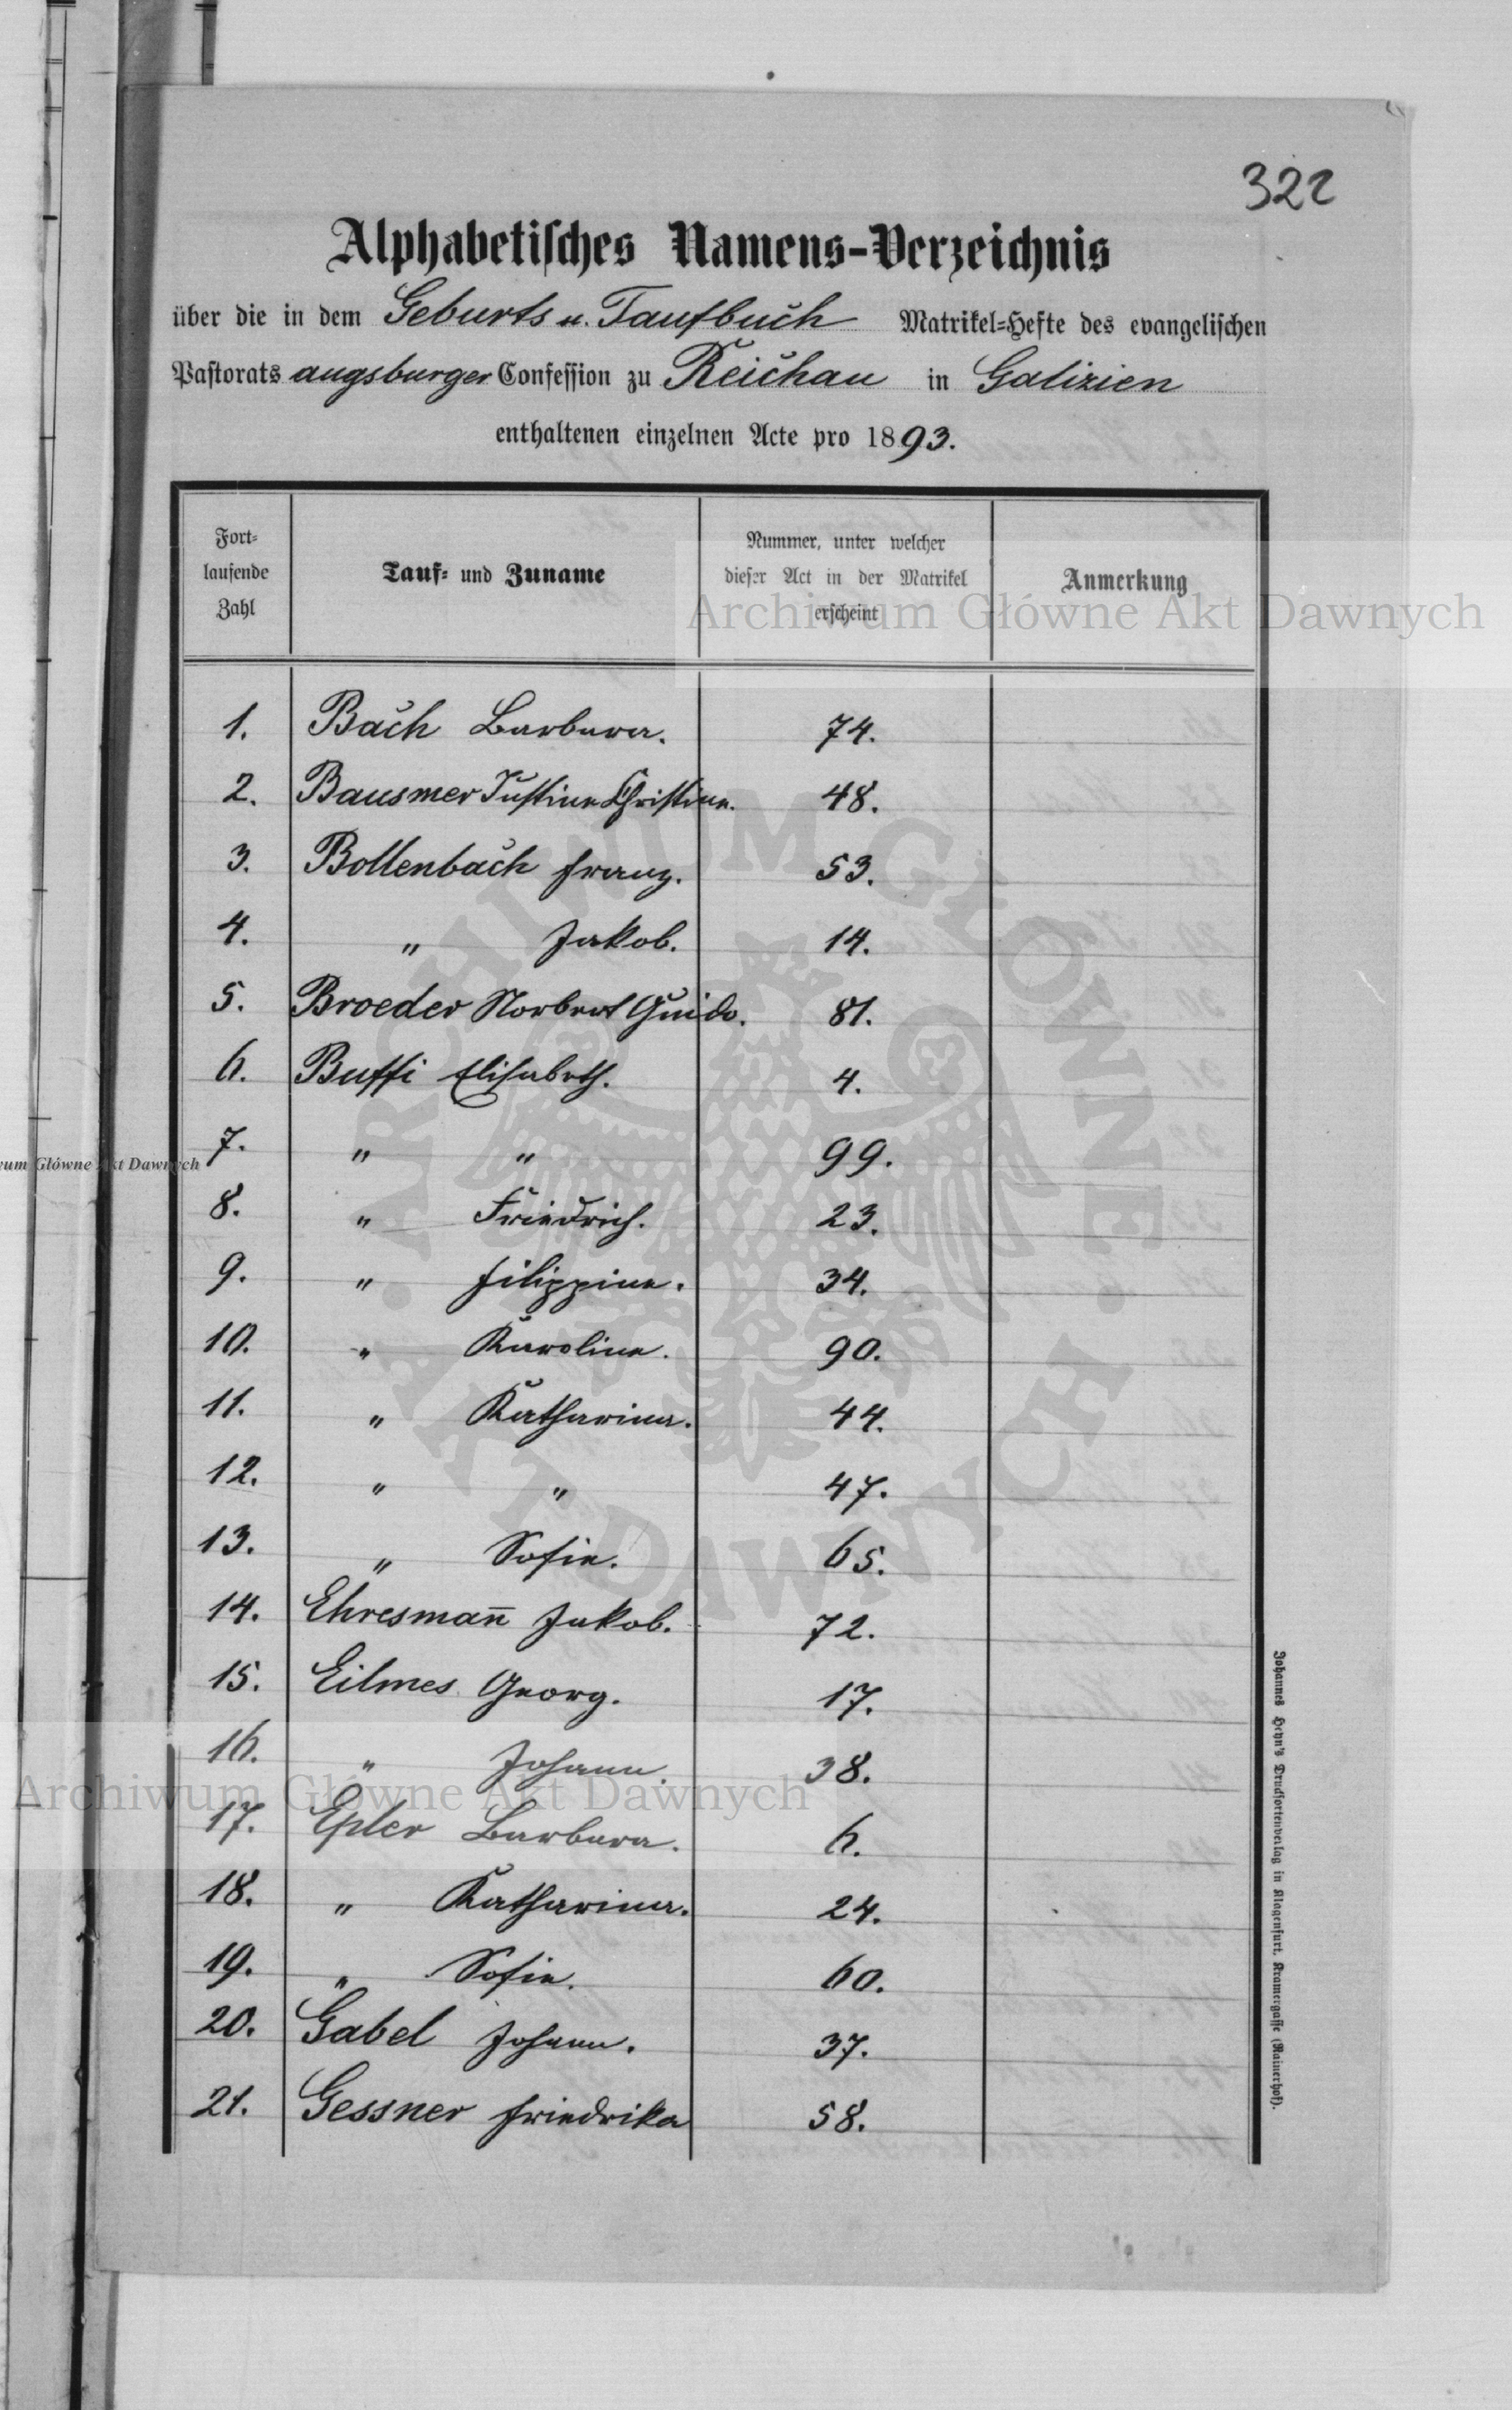 322
Alphabetisches Namens-Verzeichnis
über die in dem Geburts u. Taufbuch Matrikel-Hefte des evangelischen
Pastorats augsburger Confession zu Reichau in Galizien
enthaltenen einzelnen Acte pro 1893.
Fort-
laufende
Zahl
Tauf- und Zuname
Nummer, unter welcher
dieser Act in der Matrikel
erscheint
Anmerkung
1. Bach Barbara. 74.
2. Bausmer Justine Christine. 48.
3. Bollenbach Franz. 53.
4. " Jakob. 14.
5. Broeder Norbert Guido. 81.
6. Buffi Elisabeth. 4.
7. " " 99.
8. " Friedrich. 23.
9. " Filippine. 34.
10. " Karoline. 90.
11. " Katharina. 44.
12. " " 47.
13. " Sofie. 65.
14. Ehresman̄ Jakob. 72.
15. Eilmes Georg. 17.
16. " Johann. 38.
17. Epler Barbara. 6.
18. " Katharina. 24.
19. " Sofie. 60.
20. Gabel Johann. 37.
21. Gessner Friedrika 58.
Johannes Heyn's Drucksortenverlag in Klagenfurt, Kramergasse (Rainerhof).
Archiwum Główne Akt Dawnych
wum Główne Akt Dawnych
Archiwum Główne Akt Dawnych
ARCHIWUM GŁÓWNE AKT DAWNYCH